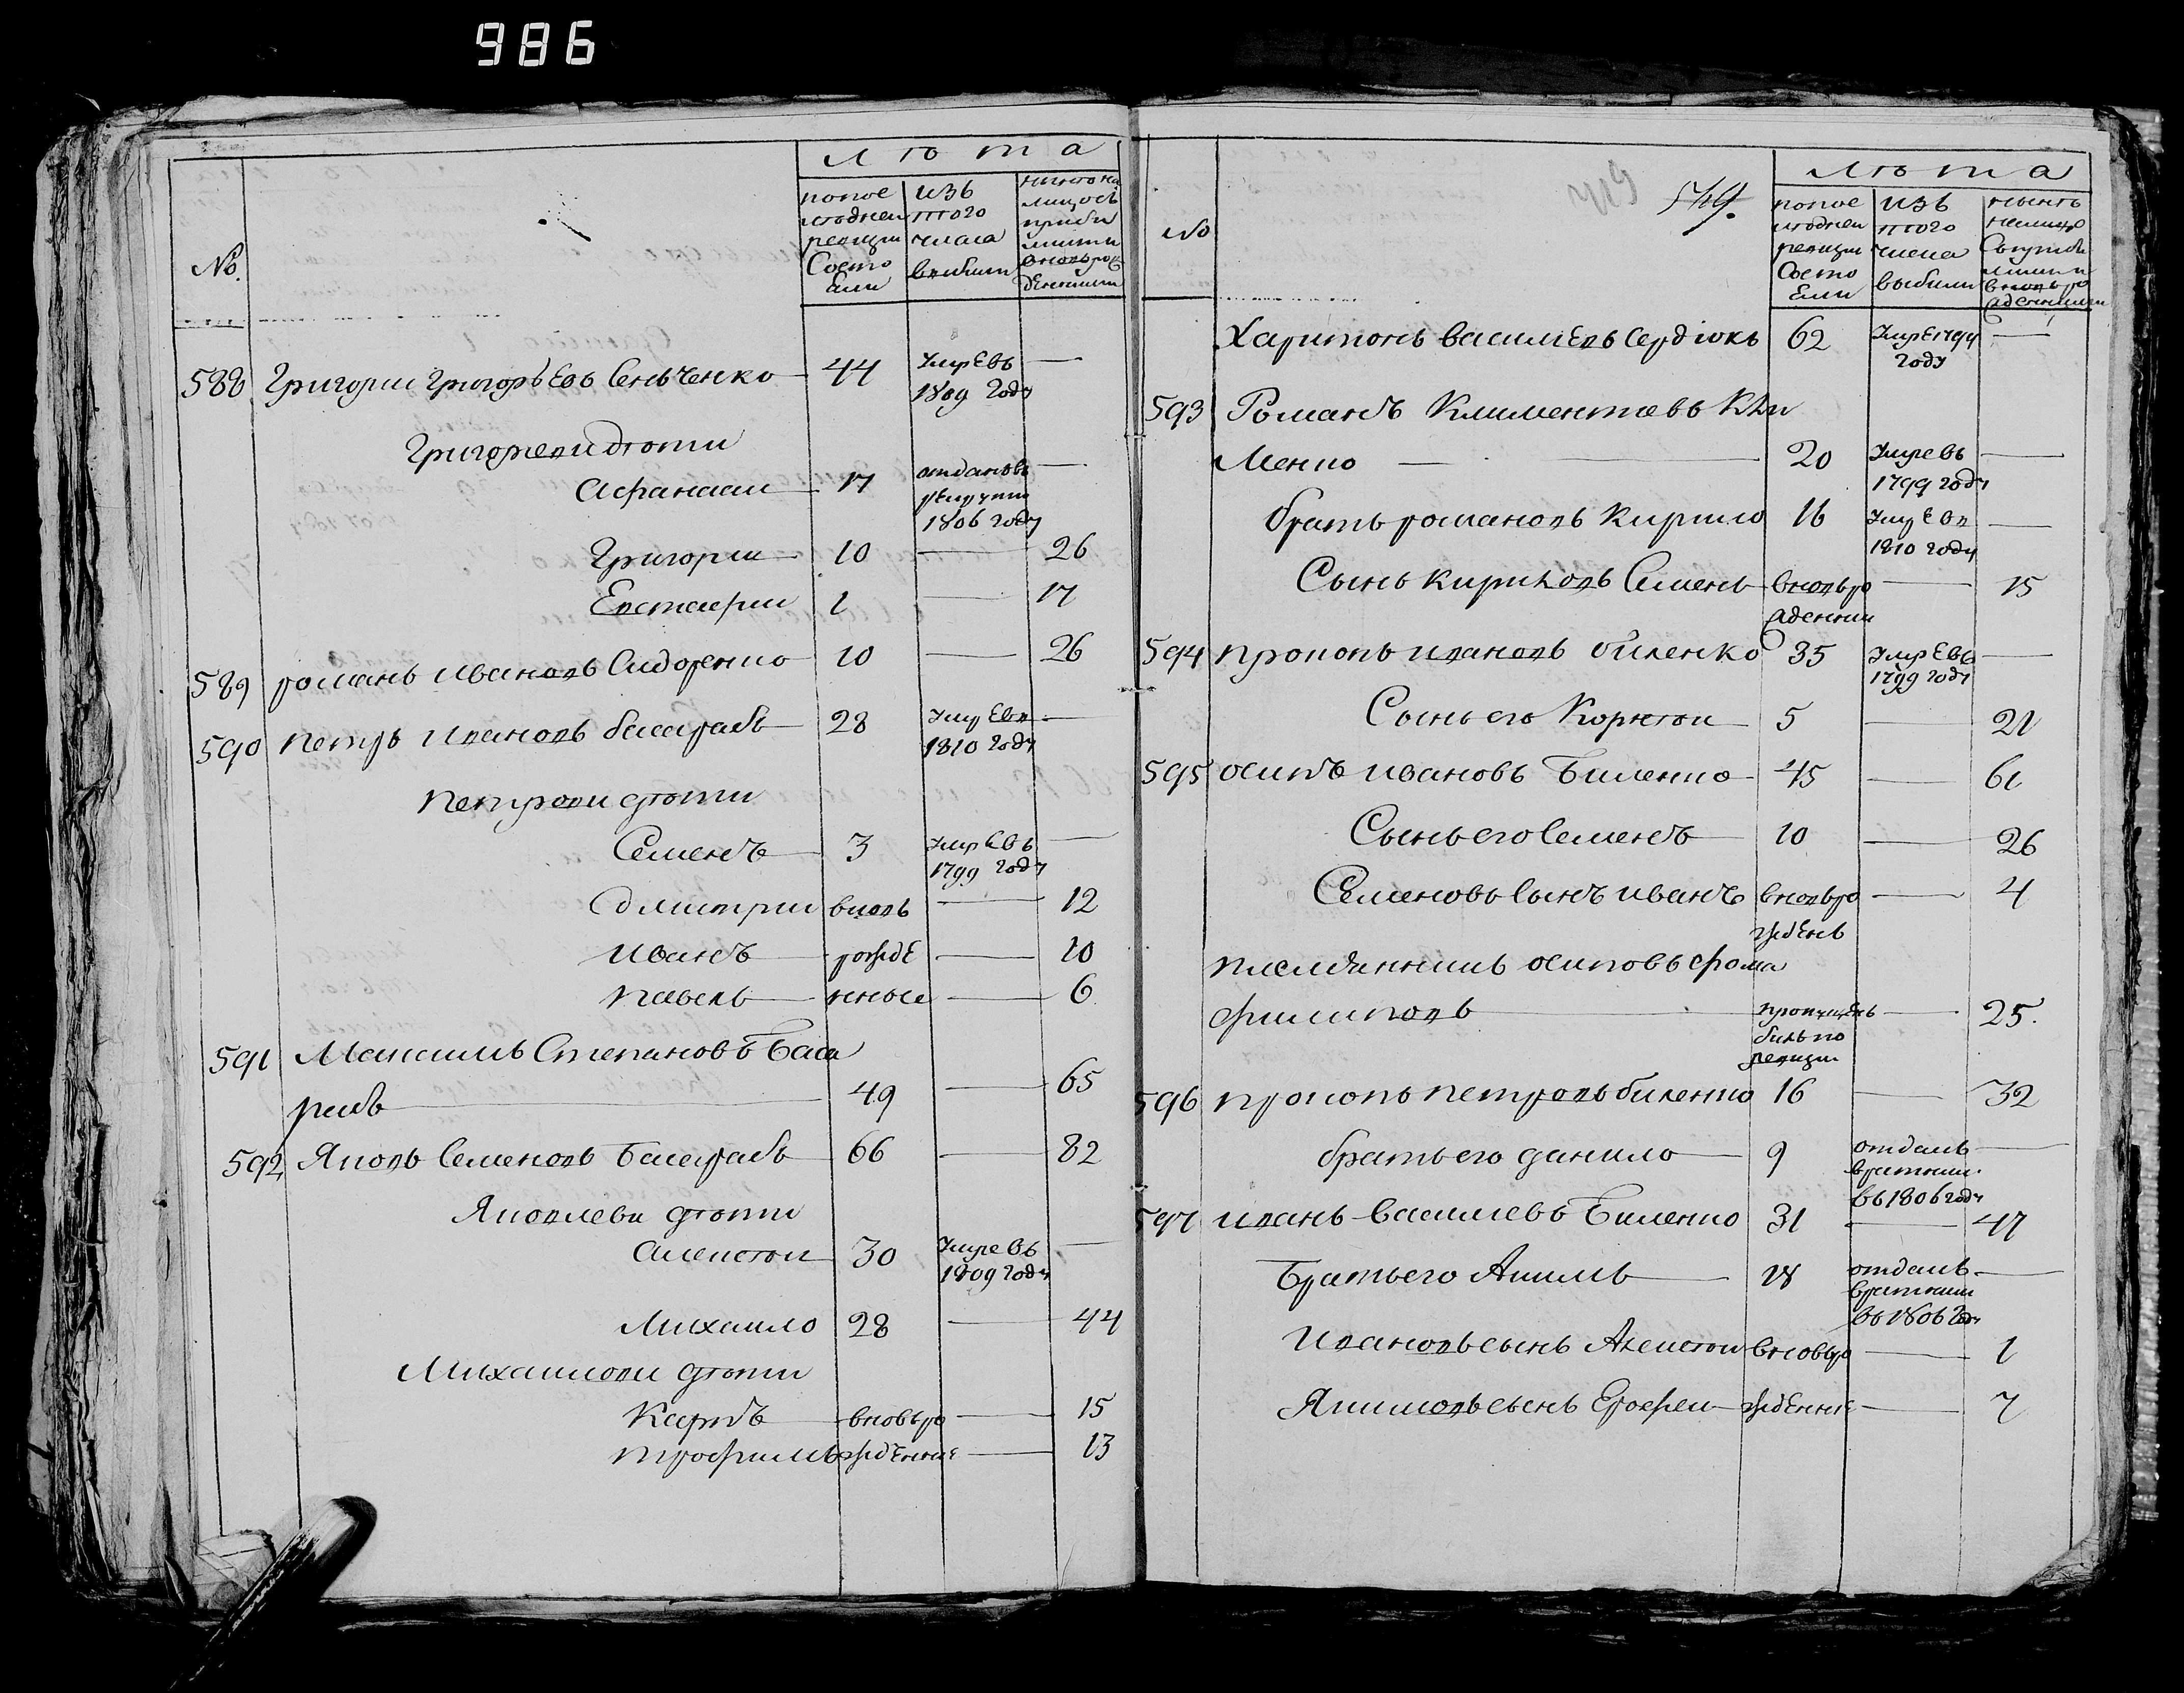 986
лѣта
№.
по пос
лѣдней
ревизіи
Состо
яли
изъ
того
числа
выбыли
лѣта
588 Григорій Григорьевъ Сенченко 44 умре въ —
1809 году
Григорьеви дѣти
Афанасій 17 отданъ въ —
рекруты
1806 году
Григорій 10 — 26
Евстафій 1 — 17
589 романъ Ивановъ Сидоренко 10 — 26
590 Петръ Ивановъ басарабъ 28 умре въ —
1810 году
Петрови дѣти
Семенъ 3 умре въ —
1799 году
дмитрій вновь — 12
Иванъ рожде — 10
Павелъ нные — 6
591 Максимъ Степановъ Баса
рабъ 49 — 65
592 Яковъ Семеновъ Басарабъ 66 — 82
Яковлеви дѣти
Алексѣй 30 умре въ —
1809 году
Михайло 28 — 44
Михайлови дѣти
Карпъ вновь ро — 15
Трофимъ жденные — 13
749.
№
по пос
лѣдней
ревизіи
Состо
яли
изъ
того
числа
выбыли
Харитонъ Василевъ Сердюкъ 62 умре 1799 —
году
593 Романъ Климентіевъ Кли
Менко — 20 умре въ —
1799 году
братъ романовъ Кирило 16 умре въ —
1810 году
Сынъ Кириловъ Семенъ вновь ро — 15
жденный
594 прокопъ Ивановъ биленко 35 умре въ —
1799 году
Сынъ его Корнѣй 5 — 21
595 осипъ Ивановъ Биленко 45 — 61
Сынъ его Семенъ 10 — 26
Семеновъ Сынъ Иванъ вновь ро — 4
жденъ
племянникъ осиповъ фома
филиповъ — пропущенъ — 25.
былъ по
ревизіи
596 прокопъ петровъ биленко 16 — 32
братъ его данило 9 отданъ —
в ратники
въ 1806 году
597 Иванъ Василіевъ Биленко 31 — 47
Братъ его Акимъ 18 отданъ —
в ратники
въ 1806 году
Ивановъ сынъ Алексѣй вновь ро — 1
Якимовъ сынъ Ерофей жденные — 7